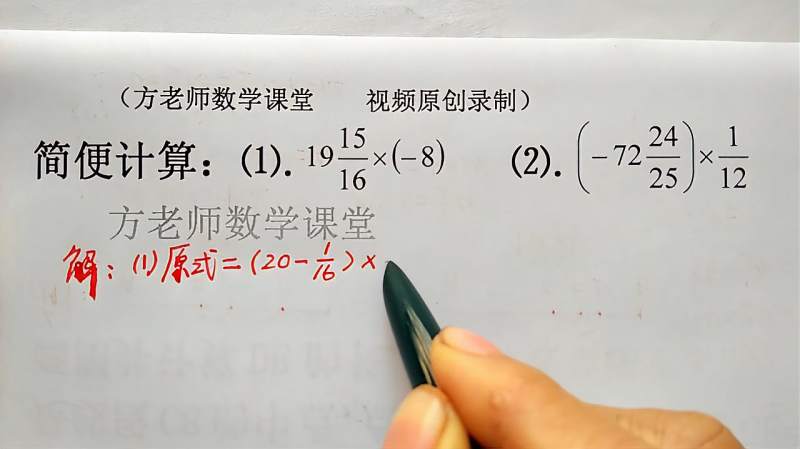 （方老师数学课堂 视频原创录制）
简便计算：(1). 19 15/16 ×(−8) (2). (−72 24/25)× 1/12
方老师数学课堂
解：(1)原式=(20−1/16)×